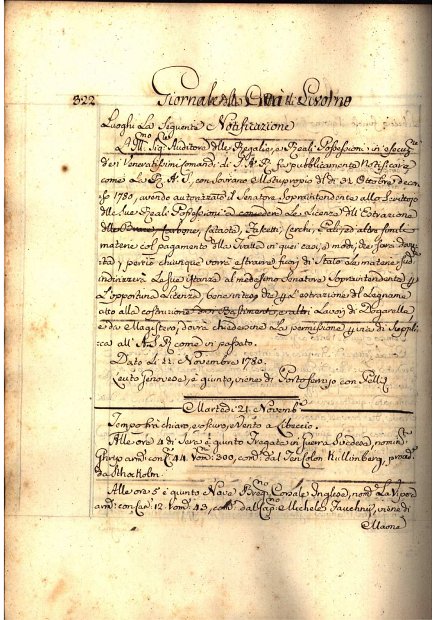 322 Giornale della Città di Livorno
Luoghi la seguente Notificazione
L'Ill.mo Sig.re Auditore delle Regalie, e Reali Possessioni in esecuz.ne
dei Veneratissimi comandi di S.A.R. fa pubblicamente Notificare
come La R.A.S. con Sovrano Motuproprio del dì 31 Ottobre decor
so 1780, avendo autorizzato il Senatore Soprintendente allo Scrittojo
delle sue Reali Possessioni a concedere le Licenze dell'Estrazione
delle Carbone, Cataste, Fascetti, Cerchj, Pali, ed altre simili
materie col pagamento della Gratella in quei casi, ed modi, che sarà
e perciò chiunque vorrà estrarre fuori di Stato le materie sud.e
indirizzerà le sue istanze al medesimo Senatore Soprintendente p.
l'opportuna Licenza, beninteso che p. l'estrazione del Legname
atto alla costruzione dei Bastimenti, e altri Lavori di Dogarella
e da Magistero, dovrà chiedersene la permissione p. via di Suppli
ca all' A.S.R. come in passato.
Dato Li 11 Novembre 1780.
Leuto Genovese, è giunto, viene di Portoferrajo con
Martedì 21. Novemb.
Tempo frà chiaro, e oscuro, e Vento a Libeccio.
Alle ore 4 di Sera è giunto Fregata in Guerra Svedese, nomin.
Grip arm. con C. 44. Vom. 300, com. dal Ten. Colon. Kullenberg, proced.
da Sthockolm.
Alle ore 5 è giunto Nave Corsale Inglese, nom. por
arm. con Can. 12. Vom. 43, com. dal Cap.no Michele viene di
Maone